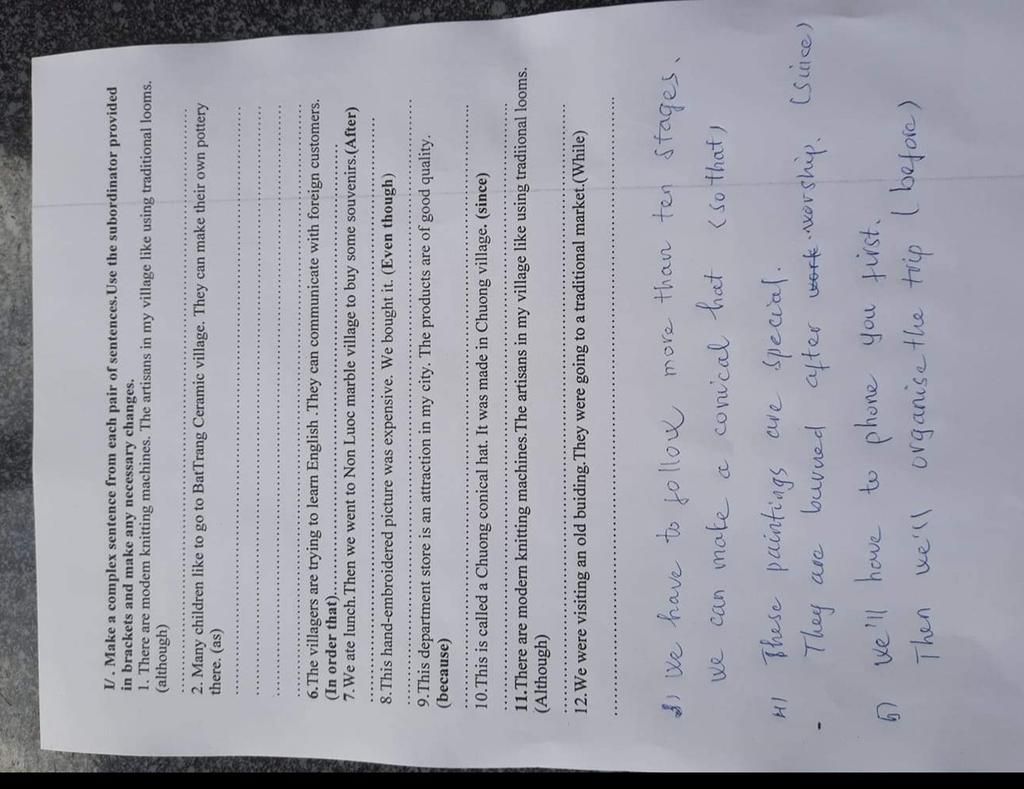 I/. Make a complex sentence from each pair of sentences.Use the subordinator provided
in brackets and make any necessary changes.
1. There are modem knitting machines. The artisans in my village like using traditional looms.
(although)
2. Many children like to go to BatTrang Ceramic village. They can make their own pottery
there. (as)
6.The villagers are trying to learn English .They can communicate with foreign customers.
(In order that)
7.We ate lunch.Then we went to Non Luoc marble village to buy some souvenirs.(After)
8.This hand-embroidered picture was expensive. We bought it. (Even though)
9.This department store is an attraction in my city. The products are of good quality.
(because)
10.This is called a Chuong conical hat. It was made in Chuong village. (since)
11.There are modern knitting machines.The artisans in my village like using tradiional looms.
(Although)
12.We were visiting an old buiding.They were going to a traditional market.(While)
3) We have to follow more than ten stages.
We can make a conical hat (so that)
4) These paintings are special.
- They are burned after work worship. (since)
5) We'll have to phone you first.
Then we'll organise the trip (before)